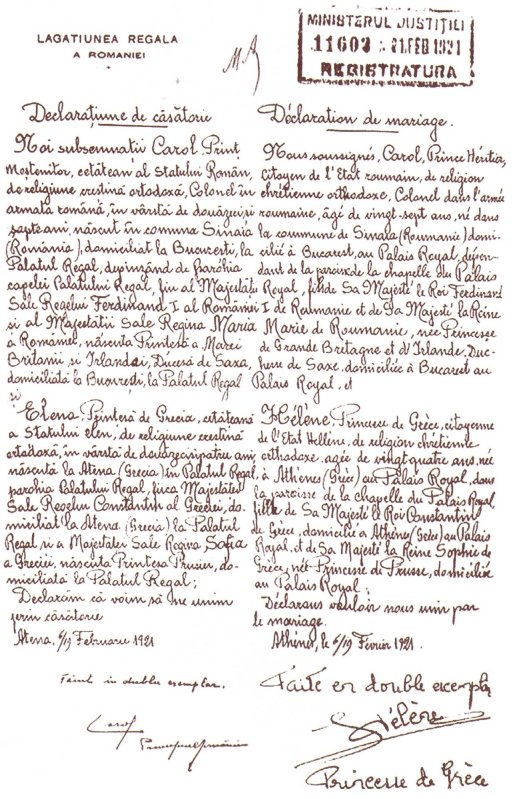 LAGATIUNEA REGALA
A ROMANIEI
MINISTERUL JUSTIȚIEI
11603 21.FEB 1921
REGISTRATURA
Declarațiune de căsătorie
Noi subsemnatii Carol Prinț
Moștenitor, cetățean al Statului Român,
de religiune creștină ortodoxă, Colonel în
armata română, în vârstă de douăzeci și
șapte ani, născut în comuna Sinaia
(România), domiciliat la București, la
Palatul Regal, depinzând de parohia
capelei Palatului Regal, fiu al Majestății
Sale Regelui Ferdinand I al României
și al Majestatii Sale Regina Maria
a României, născută Prințesă a Marei
Britanii și Irlandei, Ducesă de Saxa,
domiciliată la București, la Palatul Regal
și
Elena, Prințesă de Grecia, cetățeană
a Statului elen, de religiune creștină
ortodoxă, în vârstă de douăzecișipatru ani,
născută la Atena (Grecia) în Palatul Regal,
parohia Palatului Regal, fiica Majestatei
Sale Regelui Constantin al Greciei, do-
miciliat la Atena (Grecia) la Palatul
Regal, și a Majestatei Sale Regina Sofia
a Greciei, născută Prințesa Prusiei, do-
miciliată la Palatul Regal;
Declarăm că voim să ne unim
prin căsătorie
Atena, 6/19 Februarie 1921
Făcut in dublu exemplar.
Carol
Principe al României
Déclaration de mariage.
Nous soussignés, Carol, Prince Héritier,
citoyen de l'Etat roumain, de religion
chrétienne orthodoxe, Colonel dans l'armée
roumaine, âgé de vingt-sept ans, né dans
la commune de Sinaia (Roumanie) domi-
cilié à Bucarest, au Palais Royal, dépen-
dant de la paroisse de la chapelle du Palais
Royal, fils de Sa Majesté le Roi Ferdinand
I de Roumanie et de Sa Majesté la Reine
Marie de Roumanie, née Princesse
de Grande Bretagne et d'Irlande, Du-
chesse de Saxe, domiciliée à Bucarest au
Palais Royal, et
Hélène, Princesse de Grèce, citoyenne
de l'Etat Hellène, de religion chrétienne
orthodoxe, agée de vingt quatre ans, née
à Athènes (Grèce) au Palais Royal, dans
la paroisse de la chapelle du Palais Royal,
fille de Sa Majesté le Roi Constantin
de Grèce, domicilié à Athènes (Grèce) au Palais
Royal, et de Sa Majesté la Reine Sophie de
Grèce, née Princesse de Prusse, domiciliée
au Palais Royal;
Déclarons vouloir nous unir par
le mariage.
Athènes, le 6/19 Février 1921.
Faite en double exemplaire
Hélène
Princesse de Grèce